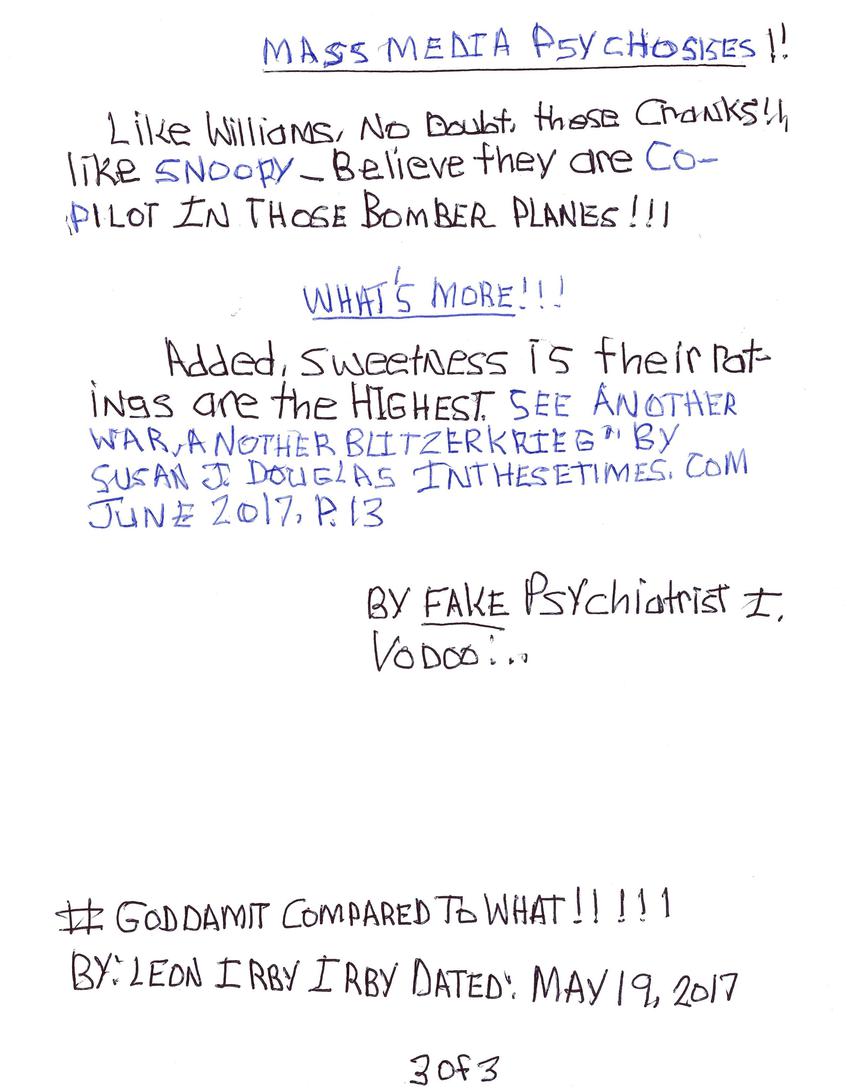 MASS MEDIA PSYCHOSISES!!
Like Williams, No Doubt, these Cranks!!,
like SNOOPY – Believe they are CO-
PILOT IN THOSE BOMBER PLANES!!!
WHAT'S MORE!!!
Added, sweetness is their rat-
ings are the HIGHEST. SEE ANOTHER
WAR, ANOTHER BLITZERKRIEG" BY
SUSAN J. DOUGLAS INTHESETIMES.COM
JUNE 2017, P.13
BY FAKE Psychiatrist I.
VODOO...
# GODDAMIT COMPARED TO WHAT!!!!!
BY: LEON IRBY IRBY DATED: MAY 19, 2017
3 of 3